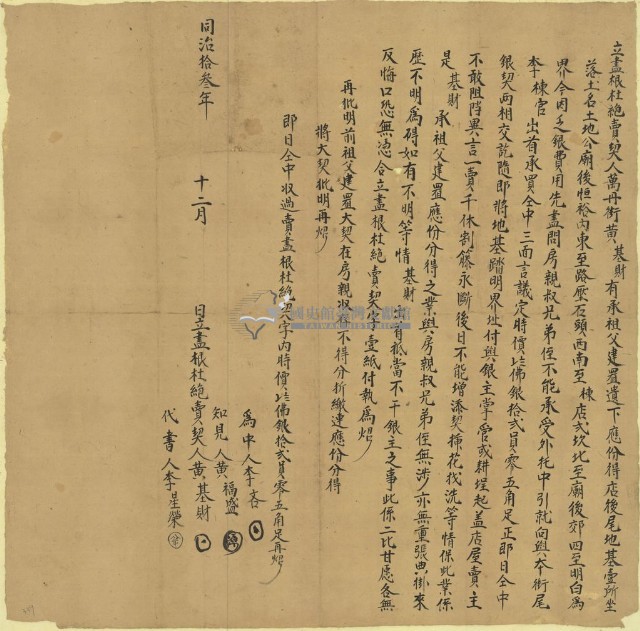 立盡根杜絕賣契人萬丹街黃基財有承祖父建置遺下應份得店後尾地基壹所坐
落土名土地公廟後恒裕內東至路壓石頭西南至棟店弍坎北至廟後郊四至明白為
界今因乏銀費用先盡問房親叔兄弟侄不能承受外托中引就向與本街尾
李棟官出首承買仝中三面言議定時價佛銀拾弍員零五角足正即日仝中
銀契兩相交訖隨即將地基踏明界址付與銀主掌管或耕埕起盖店屋賣主
不敢阻擋異言一賣千休割籐永斷後日不能增添契插花找洗等情保此業係
是基財承祖父建置應份分得之業與房親叔兄弟侄無涉亦無重張典掛來
歷不明為碍如有不明等情基財出首抵當不干銀主之事此係二比甘愿各無
反悔口恐無憑合立盡根杜絕賣契字壹紙付執為炤
再批明前祖父建置大契在房親收存不得分折繳連應份分得
將大契批明再炤
即日仝中收過賣盡根杜絕契字內時價佛銀拾弍員零五角足再炤
為中人李
知見人黃福盛
同治拾叁年十二月日立盡根杜絕賣契人黃基財
代書人李星榮
國史館臺灣文獻館
TAIWAN HISTORICA